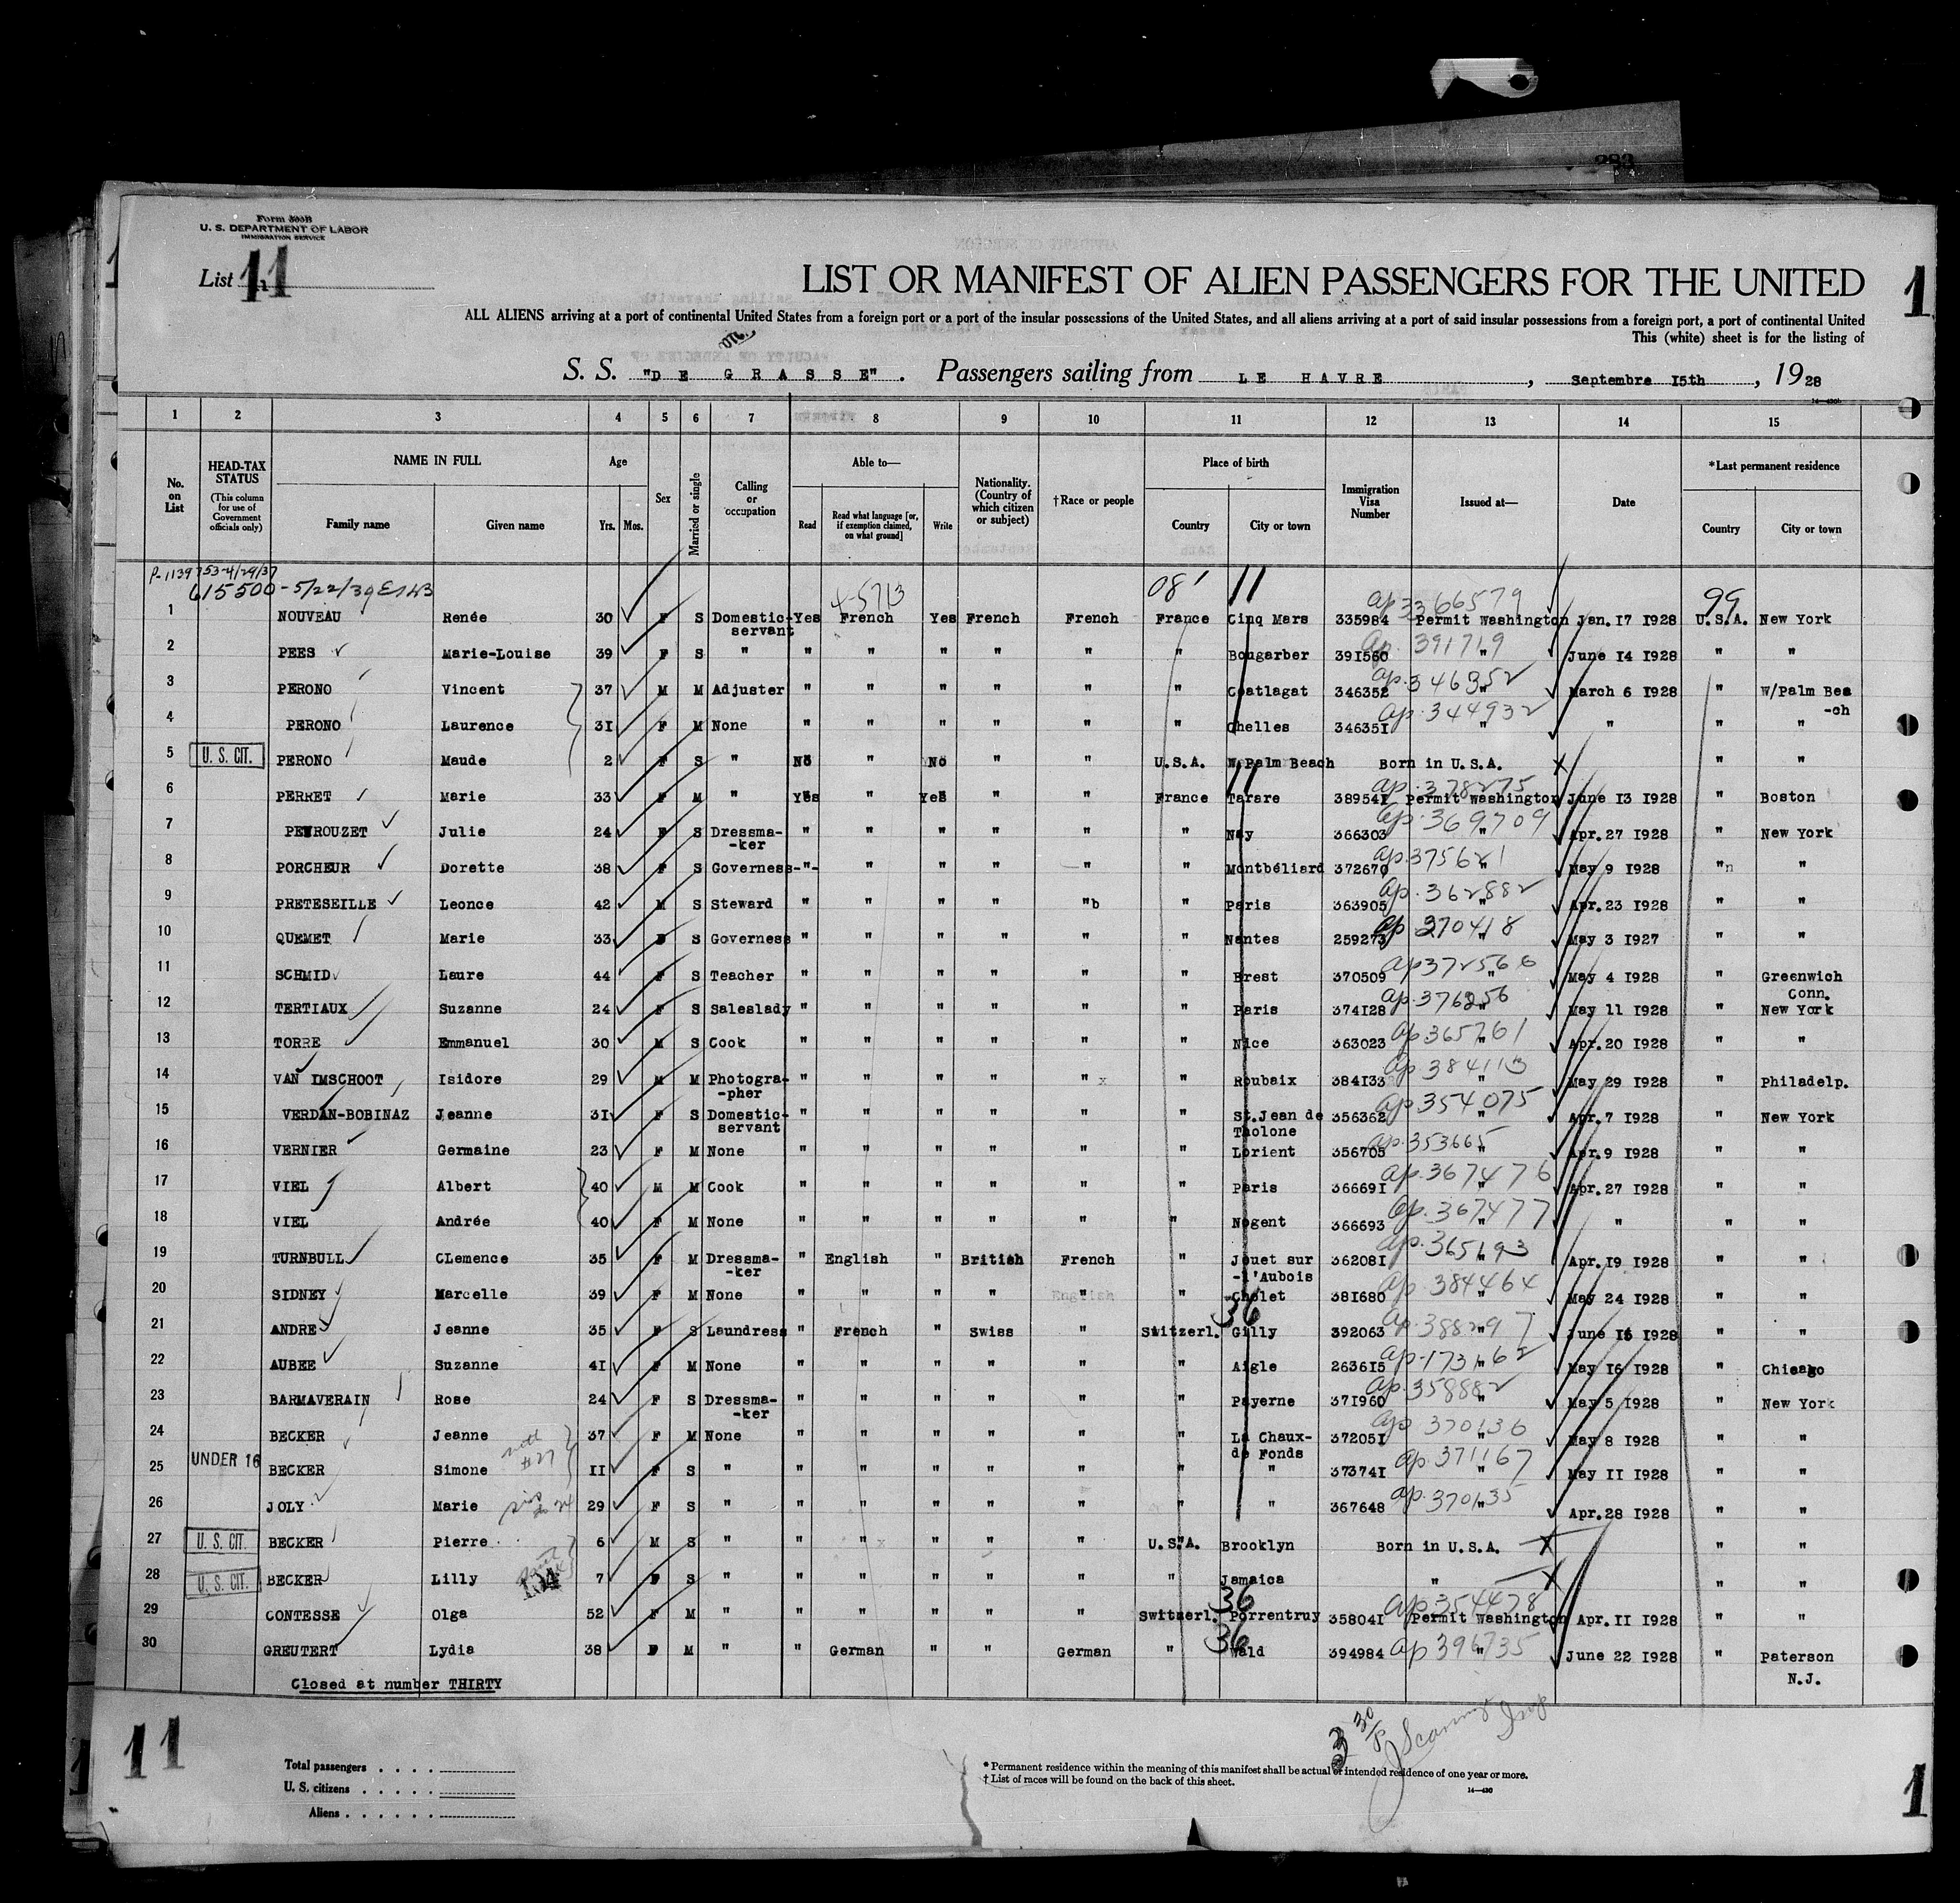 283
Form 500B
U. S. DEPARTMENT OF LABOR
IMMIGRATION SERVICE
List 11
LIST OR MANIFEST OF ALIEN PASSENGERS FOR THE UNITED
1
ALL ALIENS arriving at a port of continental United States from a foreign port or a port of the insular possessions of the United States, and all aliens arriving at a port of said insular possessions from a foreign port, a port of continental United
This (white) sheet is for the listing of
S. S. "DE GRASSE". Passengers sailing from LE HAVRE, Septembre 15th, 1928
1 2 3 4 5 6 7 8 9 10 11 12 13 14 15
No. on List HEAD-TAX STATUS (This column for use of Government officials only) NAME IN FULL Family name Given name Age Yrs. Mos. Sex Married or single Calling or occupation Able to— Read Read what language [or, if exemption claimed, on what ground] Write Nationality. (Country of which citizen or subject) †Race or people Place of birth Country City or town Immigration Visa Number Issued at— Date *Last permanent residence Country City or town
P-1139753-4/29/37
615500-5/22/39
4-5713 08' 11 99
ap 3366579
1 NOUVEAU Renée 30 F S Domestic-servant Yes French Yes French French France Cinq Mars 335984 Permit Washington Jan.17 1928 U.S.A. New York
ap. 391719
2 PEES Marie-Louise 39 F S " " " " " " " Bougarber 391560 " June 14 1928 " "
ap. 346352
3 PERONO Vincent 37 M M Adjuster " " " " " " Coatlagat 346352 " March 6 1928 " W/Palm Bea-ch
ap. 344932
4 PERONO Laurence 31 F M None " " " " " " Chelles 346351 " " " "
5 U. S. CIT. PERONO Maude 2 F S " No " No " " U.S.A. W.Palm Beach Born in U.S.A. " "
ap. 378275
6 PERRET Marie 33 F M " Yes " Yes " " France Tarare 389541 Permit Washington June 13 1928 " Boston
ap. 369709
7 PEYROUZET Julie 24 F S Dressma-ker " " " " " " Nay 366303 " Apr.27 1928 " New York
ap. 375621
8 PORCHEUR Dorette 38 F S Governess-"- " " " " " Montbéliard 372670 " May 9 1928 "n "
ap. 362882
9 PRETESEILLE Leonce 42 M S Steward " " " " "b " Paris 363905 " Apr.23 1928 " "
ap. 270418
10 QUEMET Marie 33 F S Governess " " " " " " Nantes 259273 " May 3 1927 " "
ap 372566
11 SCHMID Laure 44 F S Teacher " " " " " " Brest 370509 " May 4 1928 " Greenwich Conn.
ap. 376256
12 TERTIAUX Suzanne 24 F S Saleslady " " " " " " Paris 374128 " May 11 1928 " New York
ap. 365761
13 TORRE Emmanuel 30 M S Cook " " " " " " Nice 363023 " Apr.20 1928 " "
ap. 384113
14 VAN IMSCHOOT Isidore 29 M M Photogra-pher " " " " " x " Roubaix 384133 " May 29 1928 " Philadelp.
ap 354075
15 VERDAN-BOBINAZ Jeanne 31 F S Domestic-servant " " " " " " St.Jean de Tholone 356362 " Apr.7 1928 " New York
ap. 353665
16 VERNIER Germaine 23 F M None " " " " " " Lorient 356705 " Apr.9 1928 " "
ap. 367476
17 VIEL Albert 40 M M Cook " " " " " " Paris 366691 " Apr.27 1928 " "
ap. 367477
18 VIEL Andrée 40 F M None " " " " " " Nogent 366693 " " " "
ap. 365193
19 TURNBULL CLemence 35 F M Dressma-ker " English " British French " Jouet sur-l'Aubois 362081 " Apr.19 1928 " "
ap. 384464
20 SIDNEY Marcelle 39 F M None " " " " " " Cholet 381680 " May 24 1928 " "
36 ap. 388297
21 ANDRE Jeanne 35 F S Laundress " French " Swiss " Switzerl. Gilly 392063 " June 16 1928 " "
ap. 173162
22 AUBEE Suzanne 41 F M None " " " " " " Aigle 263615 " May 16 1928 " Chicago
ap. 358882
23 BARMAVERAIN Rose 24 F S Dressma-ker " " " " " " Payerne 371960 " May 5 1928 " New York
ap 370136
24 BECKER Jeanne 37 F M None " " " " " " La Chaux-de Fonds 372051 " May 8 1928 " "
with #27
ap. 371167
25 UNDER 16 BECKER Simone 11 F S " " " " " " " " 373741 " May 11 1928 " "
ap. 370135
26 JOLY Marie 29 F S " " " " " " " " 367648 " Apr.28 1928 " "
27 U. S. CIT. BECKER Pierre 6 M S " " " " " " U.S.A. Brooklyn Born in U.S.A. " "
28 U. S. CIT. BECKER Lilly 104 7 F S " " " " " " " Jamaica " " "
36 ap 354478
29 CONTESSE Olga 52 F M " " " " " " Switzerl. Porrentruy 358041 Permit Washington Apr.11 1928 " "
36 ap 396735
30 GREUTERT Lydia 38 F M " " German " " German " Wald 394984 " June 22 1928 " Paterson N.J.
Closed at number THIRTY
11
3 30
Total passengers
U. S. citizens
Aliens
* Permanent residence within the meaning of this manifest shall be actual or intended residence of one year or more.
† List of races will be found on the back of this sheet.
14—430
1